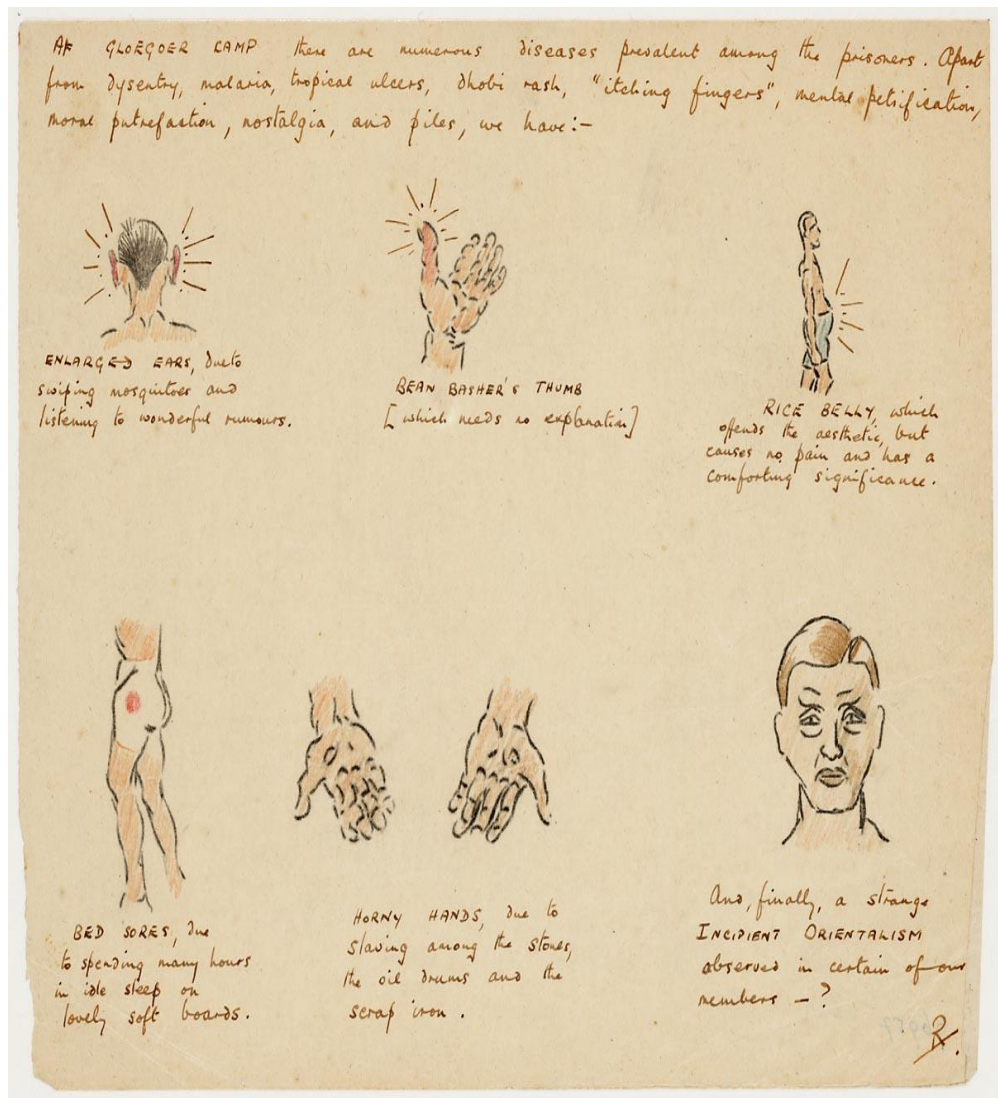 At GLOEGOER CAMP there are numerous diseases prevalent among the prisoners. Apart
from dysentry, malaria, tropical ulcers, dhobi rash, "itching fingers", mental petrification,
moral putrefaction, nostalgia, and piles, we have:-
ENLARGED EARS, due to
swiping mosquitoes and
listening to wonderful rumours.
BEAN BASHER'S THUMB
[which needs no explanation]
RICE BELLY, which
offends the aesthetic, but
causes no pain and has a
comforting significance.
BED SORES, due
to spending many hours
in idle sleep on
lovely soft boards.
HORNY HANDS, due to
slaving among the stones,
the oil drums and the
scrap iron.
And, finally, a strange
INCIPIENT ORIENTALISM
observed in certain of our
members - ?